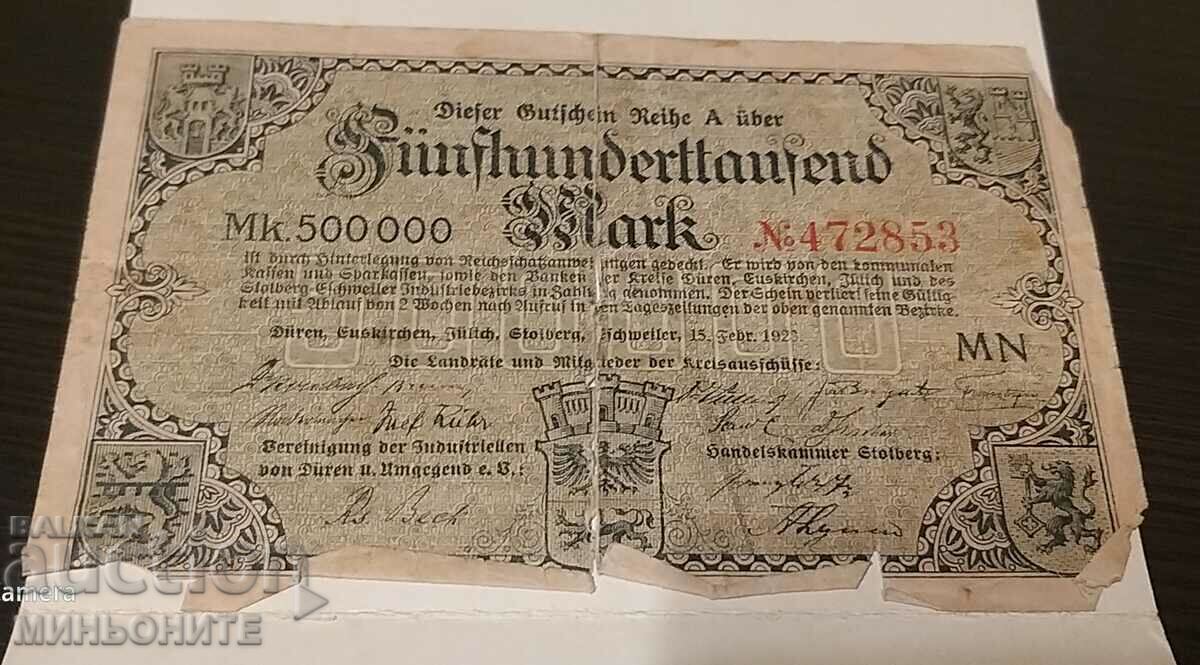 Dieser Gutschein Reihe A über
Fünfhunderttausend
Mark
Mk. 500000
№ 472853
ist durch Hinterlegung von Reichsschatzanweisungen gedeckt. Er wird von den kommunalen
Kassen und Sparkassen, sowie den Banken der Kreise Düren, Euskirchen, Jülich und des
Stolberg-Eschweiler Industriebezirks in Zahlung genommen. Der Schein verliert seine Gültig-
keit mit Ablauf von 2 Wochen nach Aufruf in den Tageszeitungen der oben genannten Bezirke.
Düren, Euskirchen, Jülich, Stolberg, Eschweiler, 15. Febr. 1923.
MN
Die Landräte und Mitglieder der Kreisausschüsse:
Josef Kühr
Vereinigung der Industriellen
von Düren u. Umgegend e. V.:
Handelskammer Stolberg:
BALKAN
auction
amera
МИНЬОНИТЕ